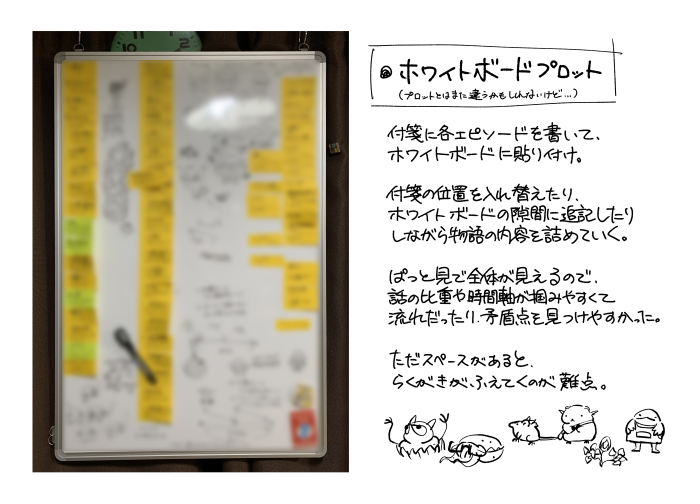 ホワイトボードプロット
(プロットとはまた違うかもしんないけど…)
付箋に各エピソードを書いて、
ホワイトボードに貼り付け。
付箋の位置を入れ替えたり、
ホワイトボードの隙間に追記したり
しながら物語の内容を詰めていく。
ぱっと見で全体が見えるので、
話の比重や時間軸が掴みやすくて
流れだったり、矛盾点を見つけやすかった。
ただスペースがあると、
らくがきがふえてくのが難点。